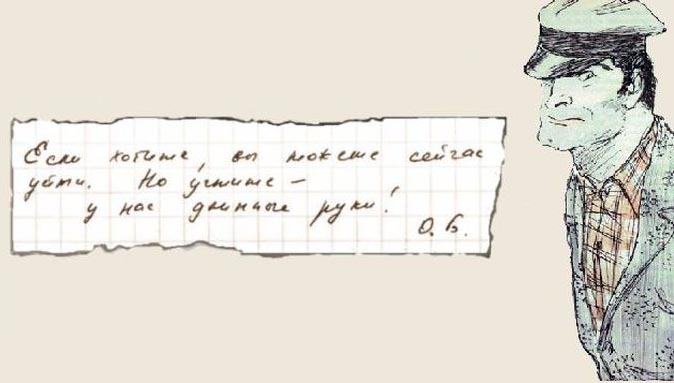 Если хотите, вы можете сейчас
уйти. Но учтите –
у нас длинные руки!
О. Б.